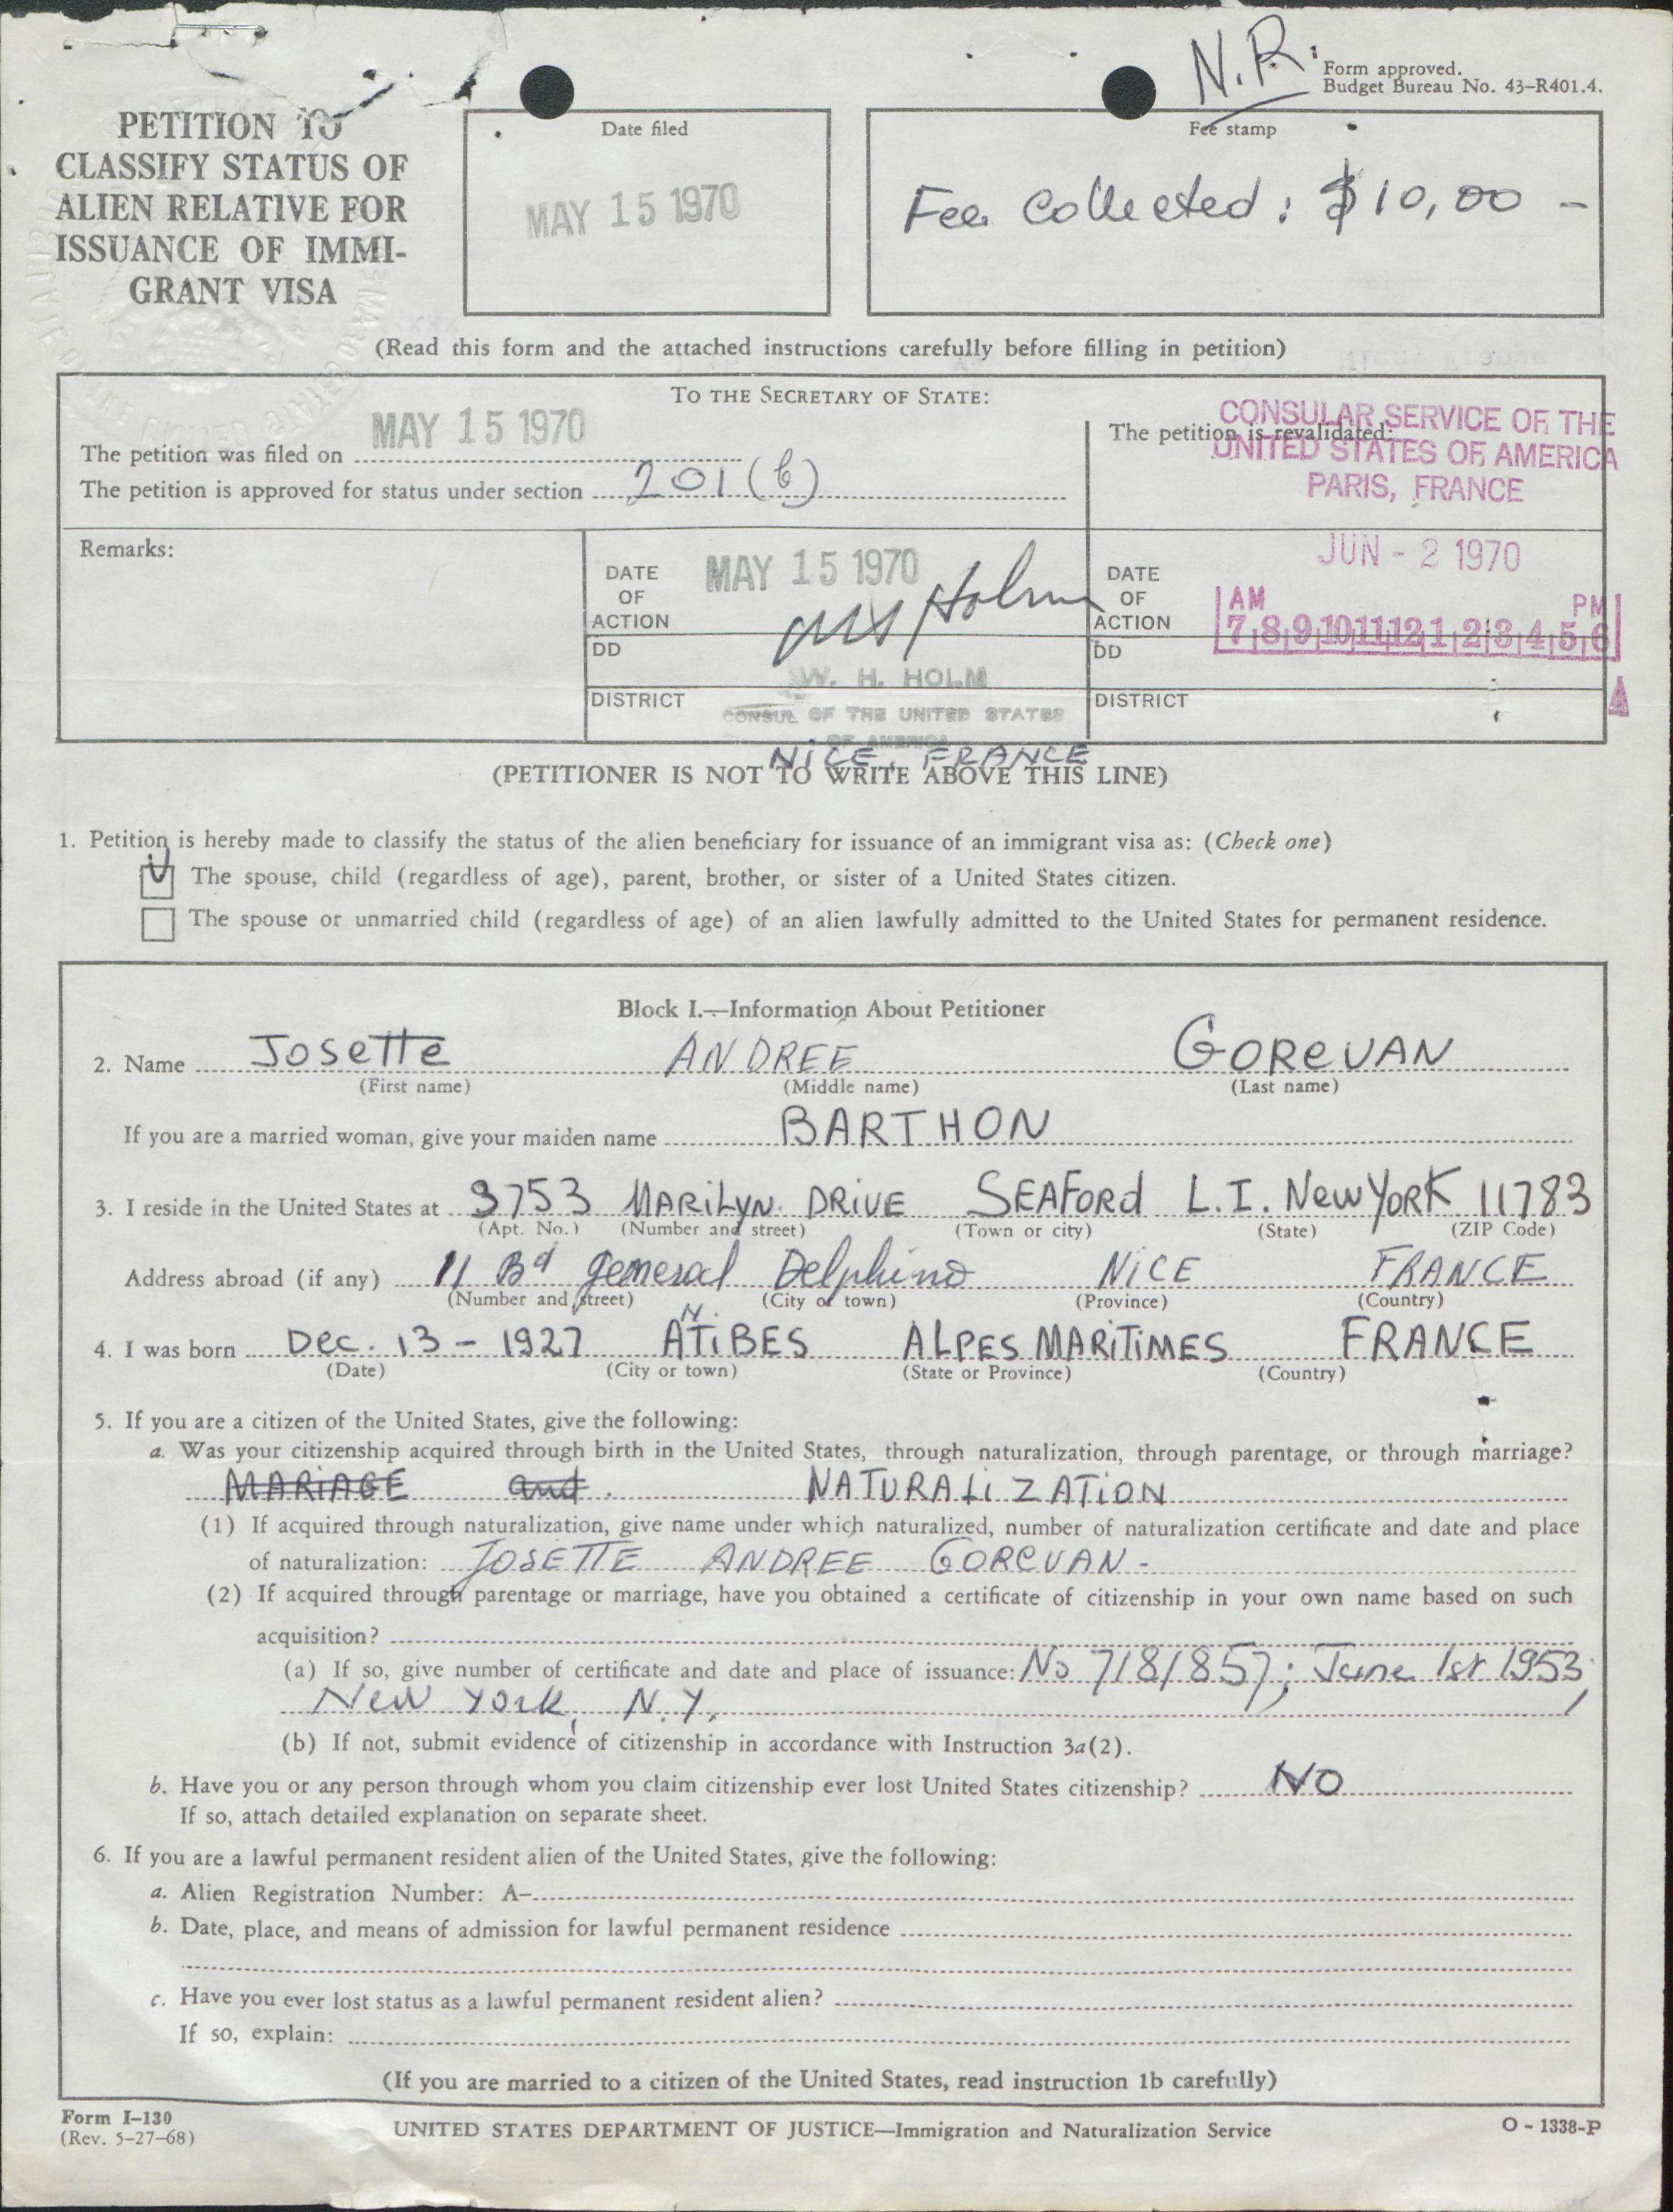 N.R.
Form approved.
Budget Bureau No. 43-R401.4.
PETITION TO
CLASSIFY STATUS OF
ALIEN RELATIVE FOR
ISSUANCE OF IMMI-
GRANT VISA
Date filed
MAY 15 1970
Fee stamp
Fee Collected: $10,00 -
(Read this form and the attached instructions carefully before filling in petition)
TO THE SECRETARY OF STATE:
The petition was filed on MAY 15 1970
The petition is approved for status under section 201(b)
The petition is revalidated:
CONSULAR SERVICE OF THE
UNITED STATES OF AMERICA
PARIS, FRANCE
Remarks:
DATE OF ACTION MAY 15 1970
DD
W. H. HOLM
DISTRICT
CONSUL OF THE UNITED STATES
OF AMERICA
NICE, FRANCE
DATE OF ACTION JUN - 2 1970
AM PM
7 8 9 10 11 12 1 2 3 4 5 6
DD
DISTRICT
(PETITIONER IS NOT TO WRITE ABOVE THIS LINE)
1. Petition is hereby made to classify the status of the alien beneficiary for issuance of an immigrant visa as: (Check one)
The spouse, child (regardless of age), parent, brother, or sister of a United States citizen.
The spouse or unmarried child (regardless of age) of an alien lawfully admitted to the United States for permanent residence.
Block I.—Information About Petitioner
2. Name Josette ANDREE GOREVAN
(First name) (Middle name) (Last name)
If you are a married woman, give your maiden name BARTHON
3. I reside in the United States at 3753 MARILYN DRIVE SEAFORd L.I. New YORK 11783
(Apt. No.) (Number and street) (Town or city) (State) (ZIP Code)
Address abroad (if any) 11 Bd general Delphino NICE FRANCE
(Number and street) (City or town) (Province) (Country)
4. I was born Dec. 13 - 1927 ANTIBES ALPES MARITIMES FRANCE
(Date) (City or town) (State or Province) (Country)
5. If you are a citizen of the United States, give the following:
a. Was your citizenship acquired through birth in the United States, through naturalization, through parentage, or through marriage?
MARIAGE and. NATURALIZATION
(1) If acquired through naturalization, give name under which naturalized, number of naturalization certificate and date and place
of naturalization: JOSETTE ANDREE GOREVAN -
(2) If acquired through parentage or marriage, have you obtained a certificate of citizenship in your own name based on such
acquisition?
(a) If so, give number of certificate and date and place of issuance: No 7181857; June 1st 1953,
New York, N.Y.
(b) If not, submit evidence of citizenship in accordance with Instruction 3a(2).
b. Have you or any person through whom you claim citizenship ever lost United States citizenship? NO
If so, attach detailed explanation on separate sheet.
6. If you are a lawful permanent resident alien of the United States, give the following:
a. Alien Registration Number: A-
b. Date, place, and means of admission for lawful permanent residence
c. Have you ever lost status as a lawful permanent resident alien?
If so, explain:
(If you are married to a citizen of the United States, read instruction 1b carefully)
Form I-130
(Rev. 5-27-68)
UNITED STATES DEPARTMENT OF JUSTICE—Immigration and Naturalization Service
O - 1338-P